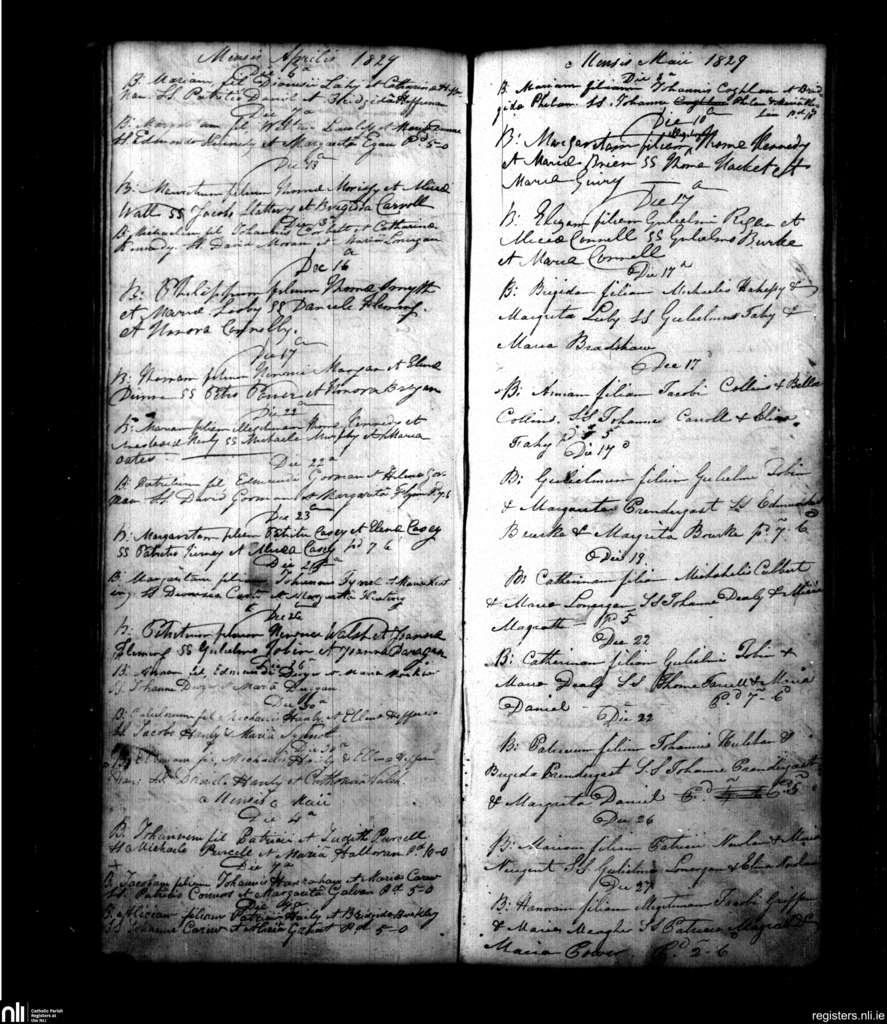 Mensis Aprilis 1829
Die 6a
B: Mariam fil Dionisii Lahy et Catharina Heffer
nan SS Patritio Daniel et Bridgita Heffernan
Die 7a
B: Margaritam fil Walteri et Mary Dunne
SS Edmundo Kennedy et Margarita Egan Pd 5-0
Die 13a
B: filium Thoma Morissy et Alicia
Wall SS Jacobo Slattery et Brigida Carroll
B: Michaelem fil Johannis Corbett et Catharina
Kennedy SS David Moran et Maria Lonegan
Die 16a
B: Philippum filium Thoma Smyth
et Maria Looby SS Daniele Fleming
et Honora Connolly.
Die 17a
B: Thomam filium Morgan et Elena
Dunne SS Petro Power et Honora Bryan
Die 22a
B: Mariam filiam Thoma Kennedy et
SS Michaele Murphy et Maria
oates
Die 22a
B: Patritium fil Edmundi Gorman et Helena Gor-
man SS David Gorman et Margarita Flynn Pd 7-6
Die 23a
B: Margaritam filiam Patritii Casey et Elena Casey
SS Patritio Tierney et Alicia Casey pd 7 6
Die
B: Margaritam filiam Johannis Tynel et Maria Keat
ing SS Dionisia et Margaritta Keating
Die 26
B: Patritium filium Walsh et Joanna
Fleming SS Gulielmo Tobin et Joanna Daragan
Die 26a
B: fil Edmundi Dwyer et
SS Johanne Dwyer et Maria Duigan
Die 30a
B: Gulielmum fil Michaelis Hanly et Ellena Heffernan
SS Jacobo Hanly et Maria
Die 30a
B: Ellenam fil Michaelis Hanly & Ellena Heffer
nan: SS Daniele Hanly et Catharina Walsh
Mensis Maii
Die 4a
B: Johannem fil Patricii et Judith Purcell
SS Michaele Purcele et Maria Halloran Pd 10-0
Die 7a
B: Jacobum filium Johannis Hanrahan et Maria Carew
SS Patritio Connors et Margarita Galvan Pd 5-0
Die
B: Mariam filiam Patricii Hanly et Bridgida Buckley
SS Johanne Carew et Maria Pd 5-0
Mensis Maii 1829
Die
B: Mariam filiam Johannis Coghlan et Brid
gida Phelan SS Johanne Coghlan Phelan
Die 10a
B: Margaritam filiam Thoma Kennedy
et Maria Brien SS Thoma Hackett et
Maria Guiry
Die 17a
B: Elizam filiam Gulielmi Regan et
Alicia Connell SS Gulielmo Burke
et Maria Connell
Die 17a
B: Brigida filiam Michaelis Hahessy &
Margrita Luby SS Gulielmus Fahy &
Maria Bradshaw
Die 17
B: Annam filiam Jacobi Collins & Bella
Collins. SS Johanne Carroll & Eliza
Fahy
Die 17
B: Gulielmum filium Gulielmi Tobin
& Margarita Prendergast SS Edmundo
Bourke & Margrita Bourke pd 7. 6
Die 19
B: Catherinam filiam Michaelis Culbert
& Maria Lonergan SS Johanne Dealy & Alicia
Magrath Pd 5
Die 22
B: Catherinam filiam Gulielmi Tobin &
Maria Dealy SS Thoma Farrell & Maria
Daniel Pd 7-6d
Die 22
B: Patricium filium Johannis Hulehan &
Brigida Prendergast SS Johanne Prendergast
& Margrita Daniel Pd Pd 5
Die 26
B: Mariam filiam Patricii Nowlan & Maria
Nugent SS Gulielmo Lonergan & Elina Nowlan
Die 27
B: Honoram filiam Jacobi Griffin
& Maria Meagher SS Patricio Magrath &
Maria Power. Pd 2-6
nli
Catholic Parish
Registers at
the NLI
registers.nli.ie